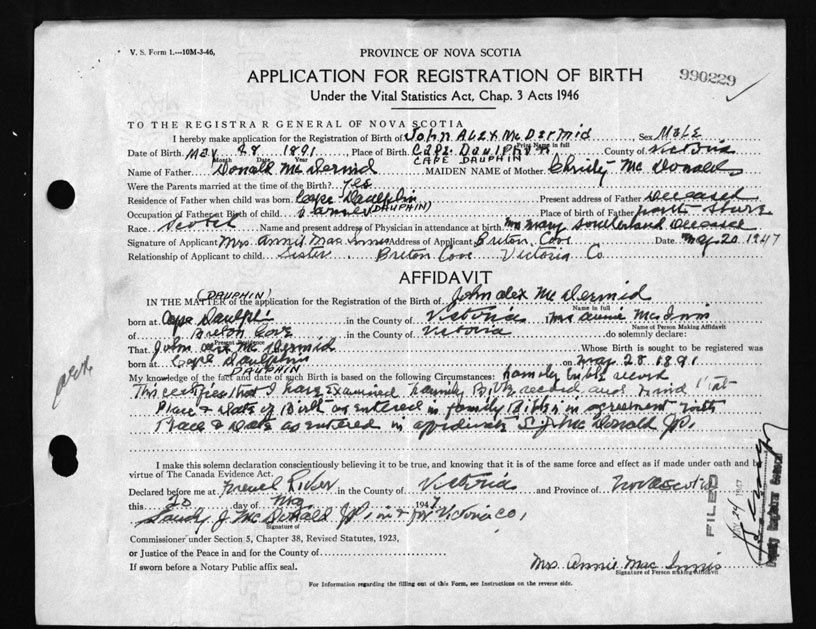 V. S. Form 1.—10M-3-46,
PROVINCE OF NOVA SCOTIA
APPLICATION FOR REGISTRATION OF BIRTH
990229
Under the Vital Statistics Act, Chap. 3 Acts 1946
TO THE REGISTRAR GENERAL OF NOVA SCOTIA
I hereby make application for the Registration of Birth of John Alex McDermid Sex Male
Print Name in full
Date of Birth May 28 1891 Place of Birth Cape Daulphin County of Victoria
Month Date Year CAPE DAUPHIN
Name of Father Donald McDermid MAIDEN NAME of Mother Christy McDonald
Were the Parents married at the time of the Birth? yes
Residence of Father when child was born Cape Daulphin Present address of Father Deceased
(DAUPHIN)
Occupation of Father at Birth of child Farmer Place of Birth of Father North Shore
Race Scotch Name and present address of Physician in attendance at birth Mrs Mary Southerland Deceased
Signature of Applicant Mrs. Annie MacInnis Address of Applicant Breton Cove Date May 20 1947
Relationship of Applicant to child Sister Breton Cove Victoria Co
AFFIDAVIT
(DAUPHIN)
IN THE MATTER of the application for the Registration of the Birth of John Alex McDermid
Name in full
born at Cape Daulphi in the County of Victoria Mrs Annie MacInnis
Name of Person Making Affidavit
of Breton Cove in the County of Victoria do solemnely declare:
Present Residence
That John Alex McDermid Whose Birth is sought to be registered was
born at Cape Daulphin on May 28 1891
DAUPHIN
My knowledge of the fact and date of such Birth is based on the following Circumstances: family bible record
This certifies that I have examined family Bible record and find that
Place & Date of Birth as entered in family Bible in agreement with
Place & Date as entered in affidavit S. J. McDonald J.P.
I make this solemn declaration conscientiously believing it to be true, and knowing that it is of the same force and effect as if made under oath and by
virtue of The Canada Evidence Act.
Declared before me at French River in the County of Victoria and Province of Nova Scotia
this 20 day of May 1947
Sandy J McDonald J.P. in & for Victoria Co,
Signature of
Commissioner under Section 5, Chapter 38, Revised Statutes, 1923,
or Justice of the Peace in and for the County of
If sworn before a Notary Public affix seal.
Mrs. Annie MacInnis
Signature of Person making Affidavit
For Information regarding the filling out of this Form, see Instructions on the reverse side.
FILED
Deputy Registrar General